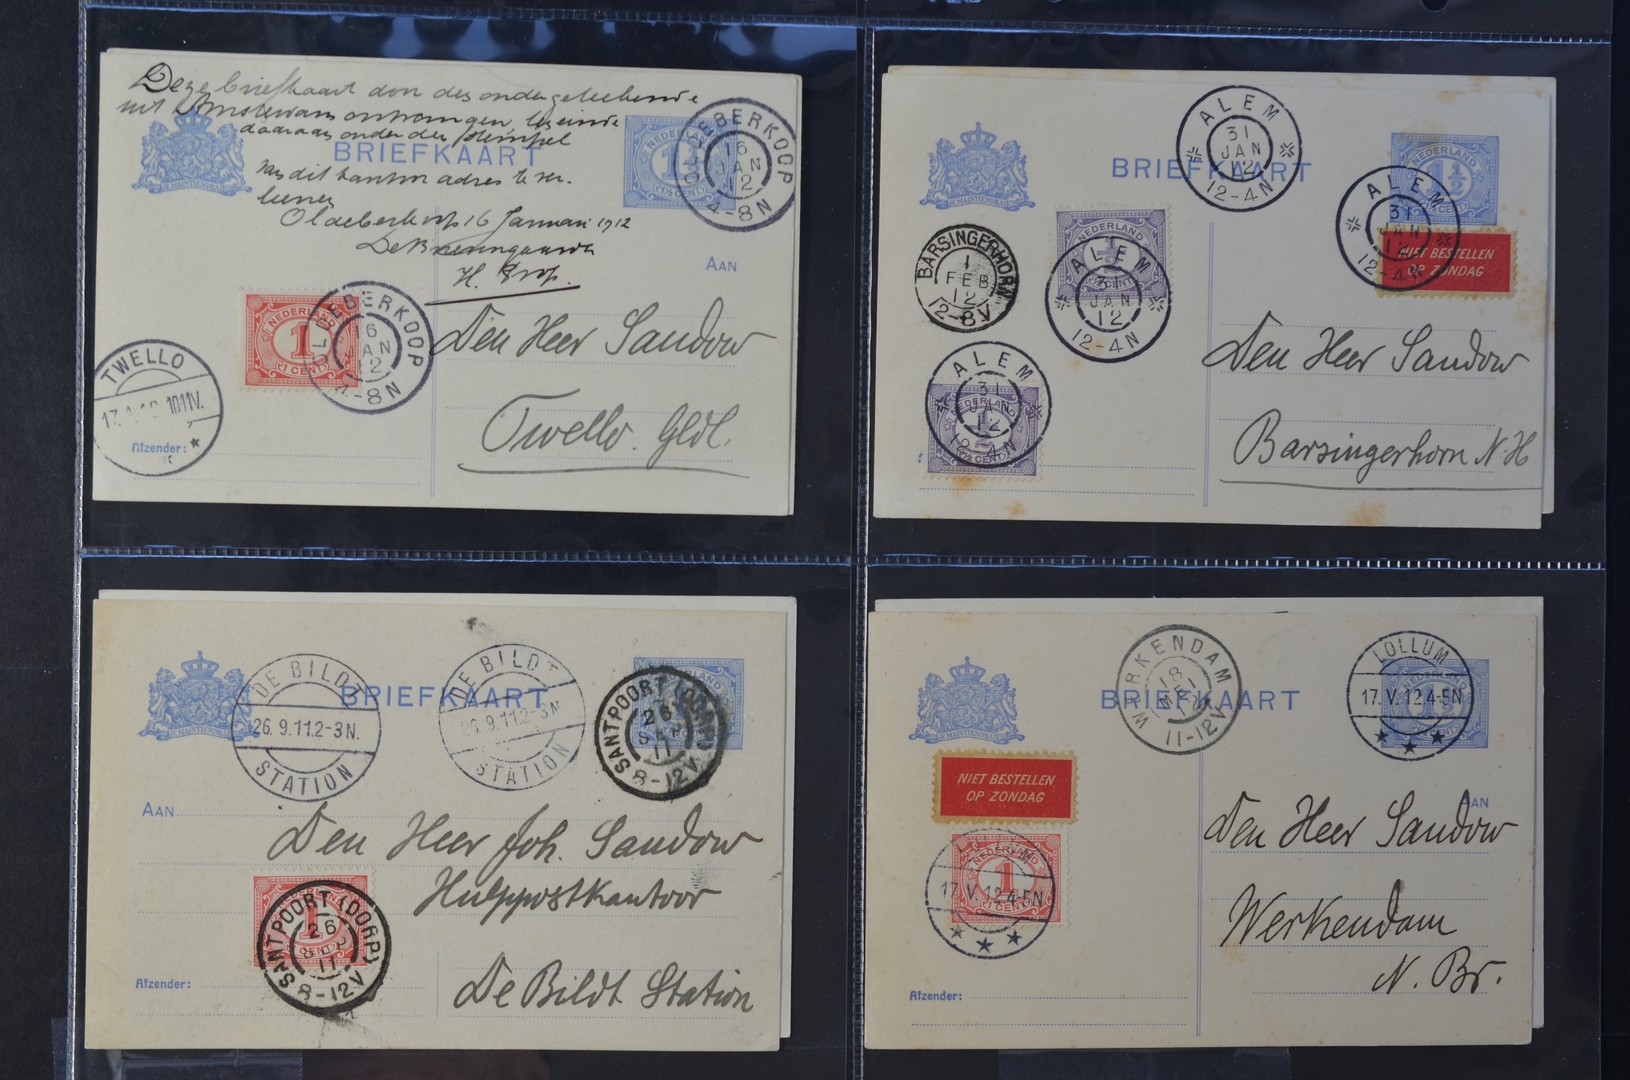 Deze briefkaart door den ondergeteekende
uit Amsterdam ontvangen
daaraan onder den stempel
van dit kantoor adres te ver-
leenen
Oldeberkoop 16 Januari 1912
H. Prop.
BRIEFKAART
JE MAINTIENDRAI
NEDERLAND
1½
1½ CENT
OLDEBERKOOP
16 JAN 12
4-8N
AAN
NEDERLAND
1
1 CENT
OLDEBERKOOP
16 JAN 12
4-8N
TWELLO
17.1.12 10-11V.
Afzender:
Den Heer Sandow
Twello. Gldl.
BRIEFKAART
JE MAINTIENDRAI
NEDERLAND
1½
1½ CENT
ALEM
31 JAN 12
12-4N
ALEM
31 JAN 12
12-4N
NIET BESTELLEN
OP ZONDAG
BARSINGERHORN
1 FEB 12
12-8V
NEDERLAND
½
½ CENT
ALEM
31 JAN 12
12-4N
NEDERLAND
½
½ CENT
ALEM
31 JAN 12
12-4N
Den Heer Sandow
Barsingerhorn N.H
BRIEFKAART
JE MAINTIENDRAI
DE BILDT
26.9.11 2-3N.
STATION
DE BILDT
26.9.11 2-3N
STATION
NEDERLAND
SANTPOORT (DORP)
26 SEP 11
8-12V
AAN
Den Heer Joh. Sandow
Hulppostkantoor
De Bildt Station
1
CENT
SANTPOORT (DORP)
26 SEP 11
8-12V
Afzender:
BRIEFKAART
JE MAINTIENDRAI
WERKENDAM
18 MEI 12
11-12V
LOLLUM
17.V.12 4-5N
NIET BESTELLEN
OP ZONDAG
NEDERLAND
1
1 CENT
LOLLUM
17.V.12 4-5N
AAN
Den Heer Sandow
Werkendam
N. Br.
Afzender: